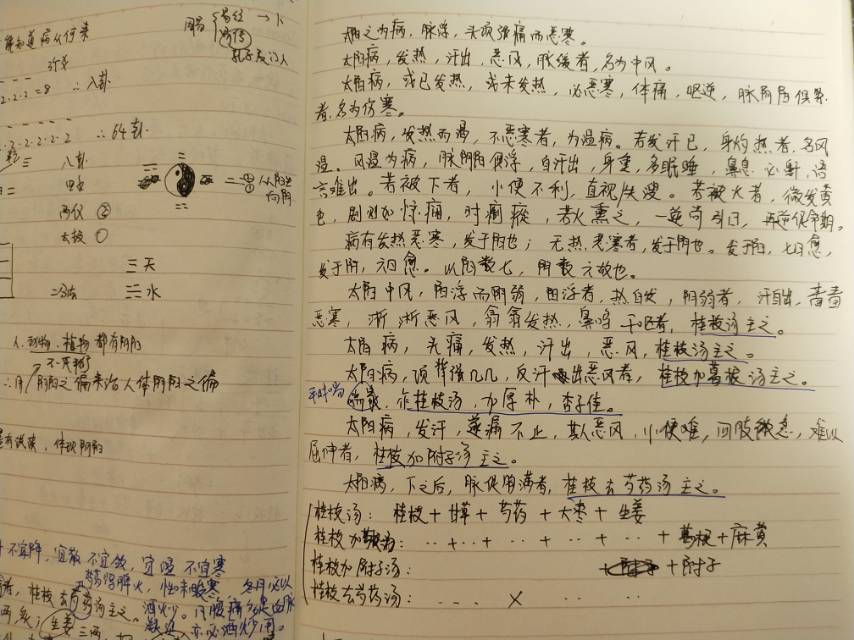 行第
2·2·2=8 ∴八卦
∴64卦
八卦
四象
两仪 ②
太极 ①
三天
水
人、动物、植物都有阴阳
∴用阴阳之偏来治人体阴阳之偏
易经
孔子及门人
太阳之为病，脉浮，头项强痛而恶寒。
太阳病，发热，汗出，恶风，脉缓者，名为中风。
太阳病，或已发热，或未发热，必恶寒，体痛，呕逆，脉阴阳俱紧
者，名为伤寒。
太阳病，发热而渴，不恶寒者，为温病。若发汗已，身灼热者，名风
温。风温为病，脉阴阳俱浮，自汗出，身重，多眠睡，鼻息必鼾，语
言难出。若被下者，小便不利，直视失溲。若被火者，微发黄
色，剧则如惊痫，时瘈疭，若火熏之，一逆尚引日，再逆促命期。
病有发热恶寒，发于阳也；无热恶寒者，发于阴也。发于阳，七日愈，
发于阴，六日愈。以阳数七，阴数六故也。
太阳中风，阳浮而阴弱，阳浮者，热自发，阴弱者，汗自出，啬啬
恶寒，淅淅恶风，翕翕发热，鼻鸣干呕者，桂枝汤主之。
太阳病，头痛，发热，汗出，恶风，桂枝汤主之。
太阳病，项背强几几，反汗出恶风者，桂枝加葛根汤主之。
喘家，作桂枝汤，加厚朴，杏子佳。
太阳病，发汗，遂漏不止，其人恶风，小便难，四肢微急，难以
屈伸者，桂枝加附子汤主之。
太阳病，下之后，脉促胸满者，桂枝去芍药汤主之。
桂枝汤：桂枝+甘草+芍药+大枣+生姜
桂枝加葛根汤：‥+‥+‥+‥+‥+葛根+麻黄
桂枝加附子汤：+附子
桂枝去芍药汤：‥ ‥ × ‥ ‥
不宜降，宜散不宜敛，宜温不宜寒
桂枝去芍药汤主之。
生姜三两